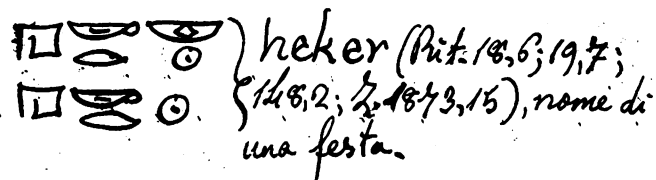 𓉔𓎡𓂋𓎱𓇳 heker (Rit. 18,6; 19,7;
𓉔𓎡𓂋𓇳 148,2; Z. 1873,15), nome di
una festa.